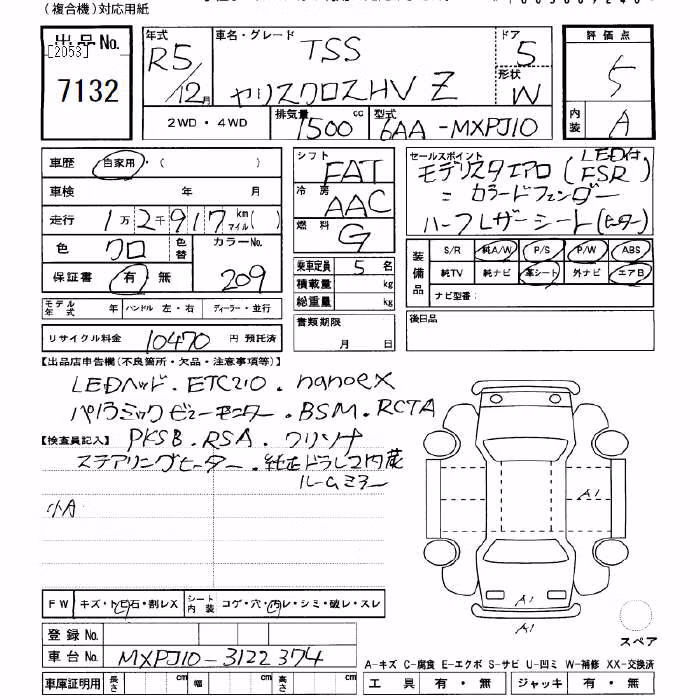 (複合機)対応用紙
出品No.
[2053]
7132
年式
R5/12月
車名・グレード
TSS
ヤリスクロスHV Z
ドア
5
形状
W
評価点
5
内装
A
2WD・4WD
排気量
1500cc
型式
6AA-MXPJ10
車歴 自家用・( )
車検 年 月
走行 1万2千917km マイル( )
色 クロ 色替 カラーNo. 209
保証書 有・無
モデル年式 年 ハンドル 左・右 ディーラー・並行
リサイクル料金 10470 円 預託済
シフト FAT
冷房 AAC
燃料 G
乗車定員 5名
積載量 kg
総重量 kg
書類期限
月 日
セールスポイント
モデリスタエアロ(LED付 FSR)
=カラードフェンダー
ハーフレザーシート(ヒーター)
装備品
S/R 純A/W P/S P/W ABS
純TV 純ナビ 革シート 外ナビ エアB
ナビ型番:
後日品
【出品店申告欄(不良箇所・欠品・注意事項等)】
LEDヘッド.ETC2.0.nanoeX
パノラミックビューモニター.BSM.RCTA
【検査員記入】
PKSB.RSA.クリソナ
ステアリングヒーター.純正ドラレコ内蔵
ルームミラー
小A
A1
A1
A1
FW キズ・トビ石・割レX シート内装 コゲ・穴・汚レ・シミ・破レ・スレ
登録No.
車台No. MXPJ10-3122374
車庫証明用 長さ cm 幅 cm 高さ cm
スペア
A-キズ C-腐食 E-エクボ S-サビ U-凹ミ W-補修 XX-交換済
工具 有・無 ジャッキ 有・無